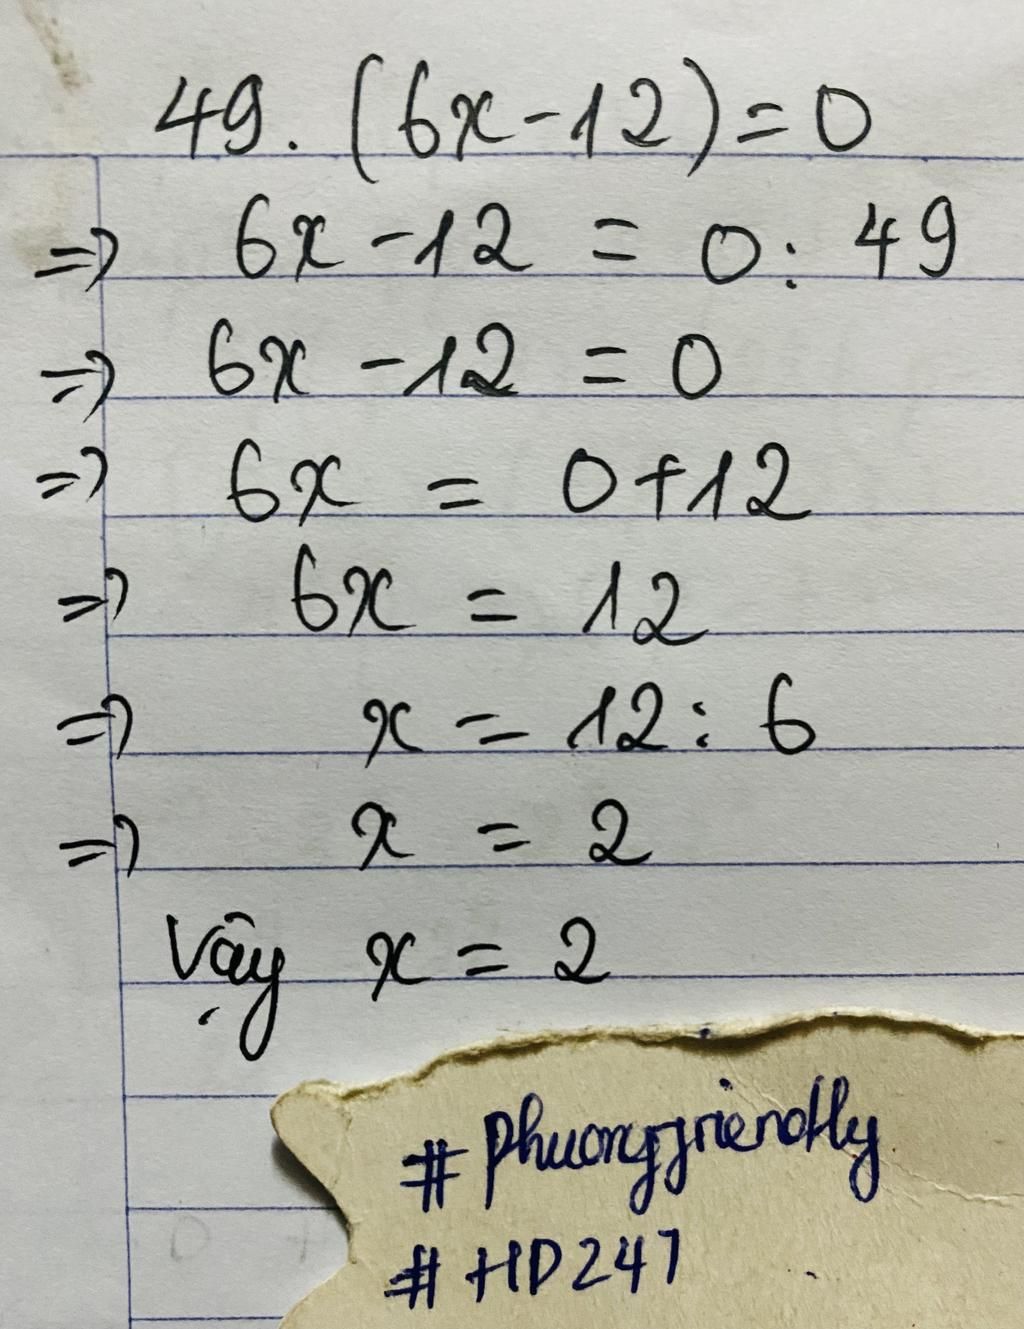 49. (6x-12) = 0
=> 6x - 12 = 0 : 49
=> 6x - 12 = 0
=> 6x = 0+12
=> 6x = 12
=> x = 12 : 6
=> x = 2
Vậy x = 2
# Phuongfriendly
# HD247